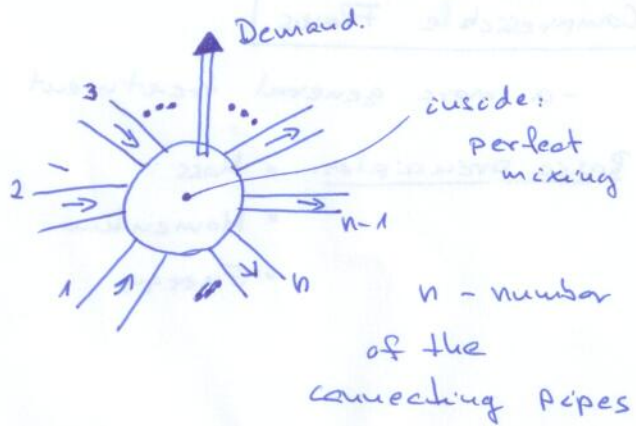 Demand.
3
inside:
perfect
mixing
2
n-1
1
n
n - number
of the
connecting pipes